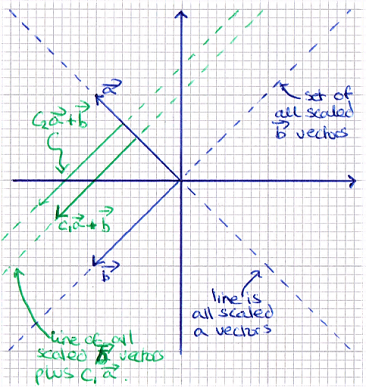 a⃗
set of
all scaled
b⃗ vectors
c₂a⃗+b⃗
c₁a⃗+b⃗
b⃗
line is
all scaled
a vectors
line of all
scaled b⃗ vectors
plus c₁a⃗.